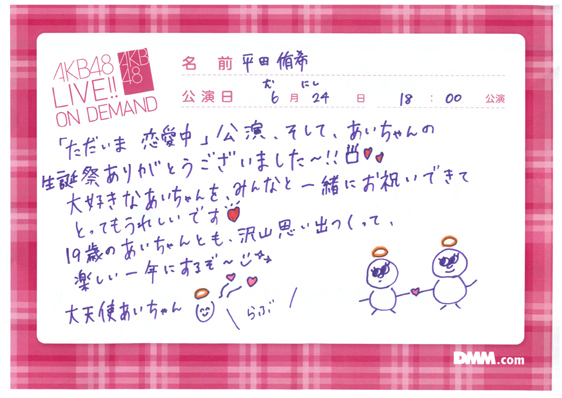 AKB48
LIVE!!
ON DEMAND
AKB
48
名前 平田 侑希
公演日 6月 24日 18:00 公演
「ただいま 恋愛中」公演、そして、あいちゃんの
生誕祭ありがとうございました〜!!
大好きなあいちゃんを、みんなと一緒にお祝いできて
とってもうれしいです
19歳のあいちゃんとも、沢山思い出つくって、
楽しい一年にするぞ〜
大天使あいちゃん
\らぶ/
DMM.com